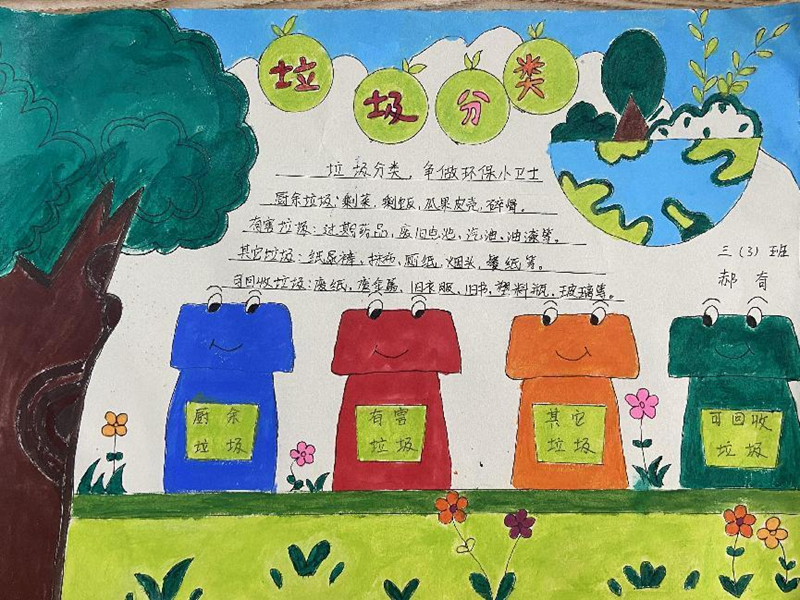 垃圾分类
垃圾分类，争做环保小卫士
厨余垃圾：剩菜、剩饭、瓜果皮壳、碎骨。
有害垃圾：过期药品、废旧电池、汽油、油漆等。
其它垃圾：纸尿裤、抹布、厕纸、烟头、餐纸等。
可回收垃圾：废纸、废金属、旧衣服、旧书、塑料瓶、玻璃等。
三（3）班
郝
厨余
垃圾
有害
垃圾
其它
垃圾
可回收
垃圾